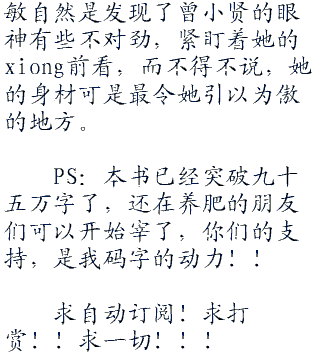 敏自然是发现了曾小贤的眼
神有些不对劲，紧盯着她的
xiong前看，而不得不说，她
的身材可是最令她引以为傲
的地方。
PS：本书已经突破九十
五万字了，还在养肥的朋友
们可以开始宰了，你们的支
持，是我码字的动力！！
求自动订阅！求打
赏！！求一切！！！